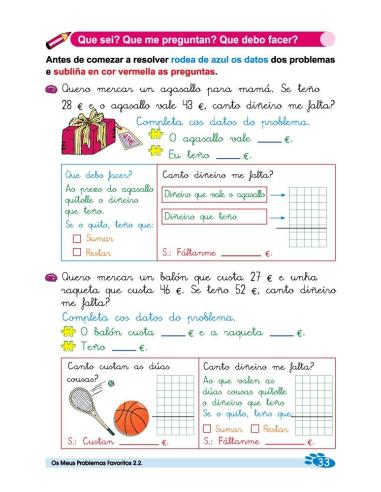 Que sei? Que me preguntan? Que debo facer?
Antes de comezar a resolver rodea de azul os datos dos problemas
e subliña en cor vermella as preguntas.
Quero mercar un agasallo para mamá. Se teño
28 € e o agasallo vale 43 €, canto diñeiro me falta?
Completa cos datos do problema.
O agasallo vale ____ €.
Eu teño ____ €.
Que debo facer?
Ao prezo do agasallo
quítolle o diñeiro
que teño.
Se o quito, teño que:
Sumar
Restar
Canto diñeiro me falta?
Diñeiro que vale o agasallo
Diñeiro que teño
S.: Fáltanme ____ €.
Quero mercar un balón que custa 27 € e unha
raqueta que custa 46 €. Se teño 52 €, canto diñeiro
me falta?
Completa cos datos do problema.
O balón custa ____ € e a raqueta ____ €.
Teño ____ €.
Canto custan as dúas
cousas?
S.: Custan ____ €.
Canto diñeiro me falta?
Ao que valen as
dúas cousas quítolle
o diñeiro que teño
Se o quito, teño que:
Sumar
Restar
S.: Fáltanme ____ €.
Os Meus Problemas Favoritos 2.2.
33